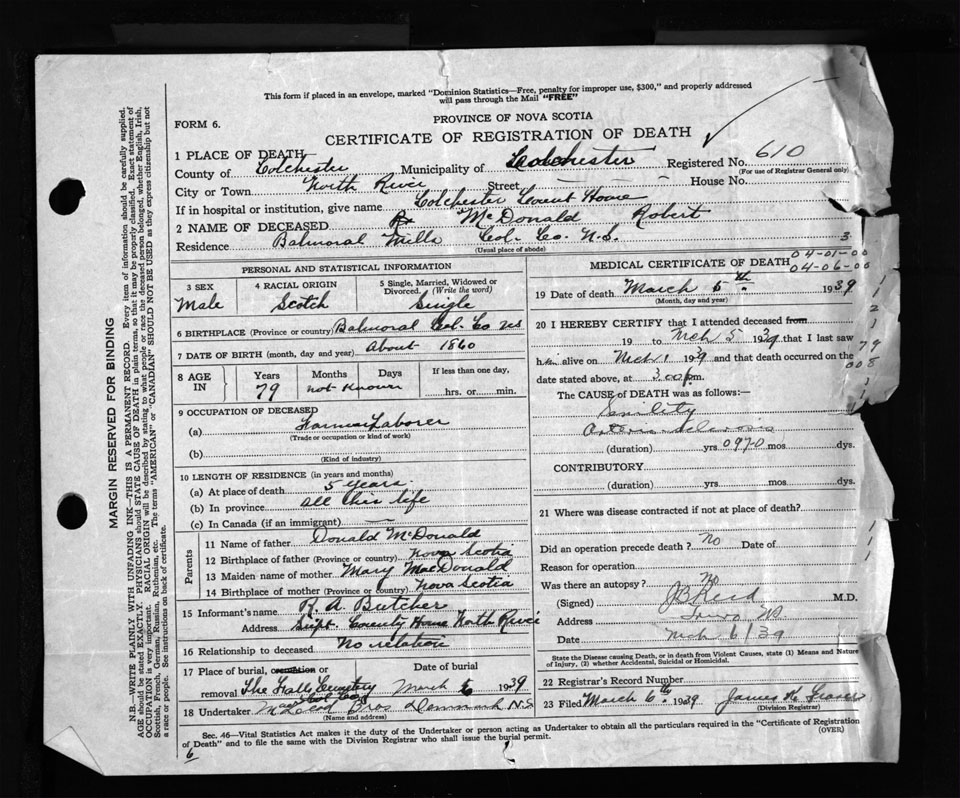 This form if placed in an envelope, marked "Dominion Statistics—Free, penalty for improper use, $300," and properly addressed
will pass through the Mail "FREE"
PROVINCE OF NOVA SCOTIA
FORM 6.
CERTIFICATE OF REGISTRATION OF DEATH
1 PLACE OF DEATH
County of Colchester Municipality of Colchester Registered No. 610
(For use of Registrar General only)
City or Town North River Street House No.
If in hospital or institution, give name Colchester County Home
2 NAME OF DECEASED McDonald Robert
Residence Balmoral Mills Col. Co. N.S. 3
(Usual place of abode)
04-01-00
04-06-00
PERSONAL AND STATISTICAL INFORMATION
3 SEX 4 RACIAL ORIGIN 5 Single, Married, Widowed or Divorced. (Write the word)
Male Scotch Single
6 BIRTHPLACE (Province or country) Balmoral Col. Co NS
7 DATE OF BIRTH (month, day and year) About 1860
8 AGE IN Years Months Days If less than one day,
79 not known hrs. or min.
9 OCCUPATION OF DECEASED
(a) Farmer Laborer
(Trade or occupation or kind of work)
(b)
(Kind of industry)
10 LENGTH OF RESIDENCE (in years and months)
(a) At place of death 5 years.
(b) In province all his life
(c) In Canada (if an immigrant) —
Parents
11 Name of father Donald McDonald
12 Birthplace of father (Province or country) Nova Scotia
13 Maiden name of mother Mary MacDonald
14 Birthplace of mother (Province or country) Nova Scotia
15 Informant's name R. A. Butcher
Address Supt. County Home North River
16 Relationship to deceased No relation
17 Place of burial, cremation or removal Date of burial
The Falls Cemetery March 6 1939
18 Undertaker MacLeod Bros Denmark N.S
(Name and address)
MEDICAL CERTIFICATE OF DEATH
19 Date of death March 5th. 1939
(Month, day and year)
20 I HEREBY CERTIFY that I attended deceased from
19 to Mch 5 1939 that I last saw
him alive on Mch 1 1939 and that death occurred on the
date stated above, at 3.00 p.m.
The CAUSE of DEATH was as follows:—
Senility
Arterio-sclerosis
(duration) yrs 097-0 mos. dys.
CONTRIBUTORY
(duration) yrs. mos. dys.
21 Where was disease contracted if not at place of death?
Did an operation precede death? No Date of
Reason for operation
Was there an autopsy? No
(Signed) J B Reid M.D.
Address Truro NS
Date Mch 6/39
State the Disease causing Death, or in death from Violent Causes, state (1) Means and Nature
of Injury, (2) whether Accidental, Suicidal or Homicidal.
22 Registrar's Record Number
23 Filed March 6th. 1939 James
(Division Registrar)
Sec. 46—Vital Statistics Act makes it the duty of the Undertaker or person acting as Undertaker to obtain all the particulars required in the "Certificate of Registration
of Death" and to file the same with the Division Registrar who shall issue the burial permit. (OVER)
6
MARGIN RESERVED FOR BINDING
N.B.—WRITE PLAINLY WITH UNFADING INK—THIS IS A PERMANENT RECORD. Every item of information should be carefully supplied.
AGE should be stated EXACTLY. PHYSICIANS should STATE CAUSE OF DEATH in plain terms, so that it may be properly classified. Exact statement of
OCCUPATION is very important. RACIAL ORIGIN will be described by stating to what people or race the deceased person belonged, whether English, Irish,
Scottish, French, German, Russian, Ruthenian, etc. The terms "AMERICAN" or "CANADIAN" SHOULD NOT BE USED as they express citizenship but not
a race or people. See instructions on back of certificate.